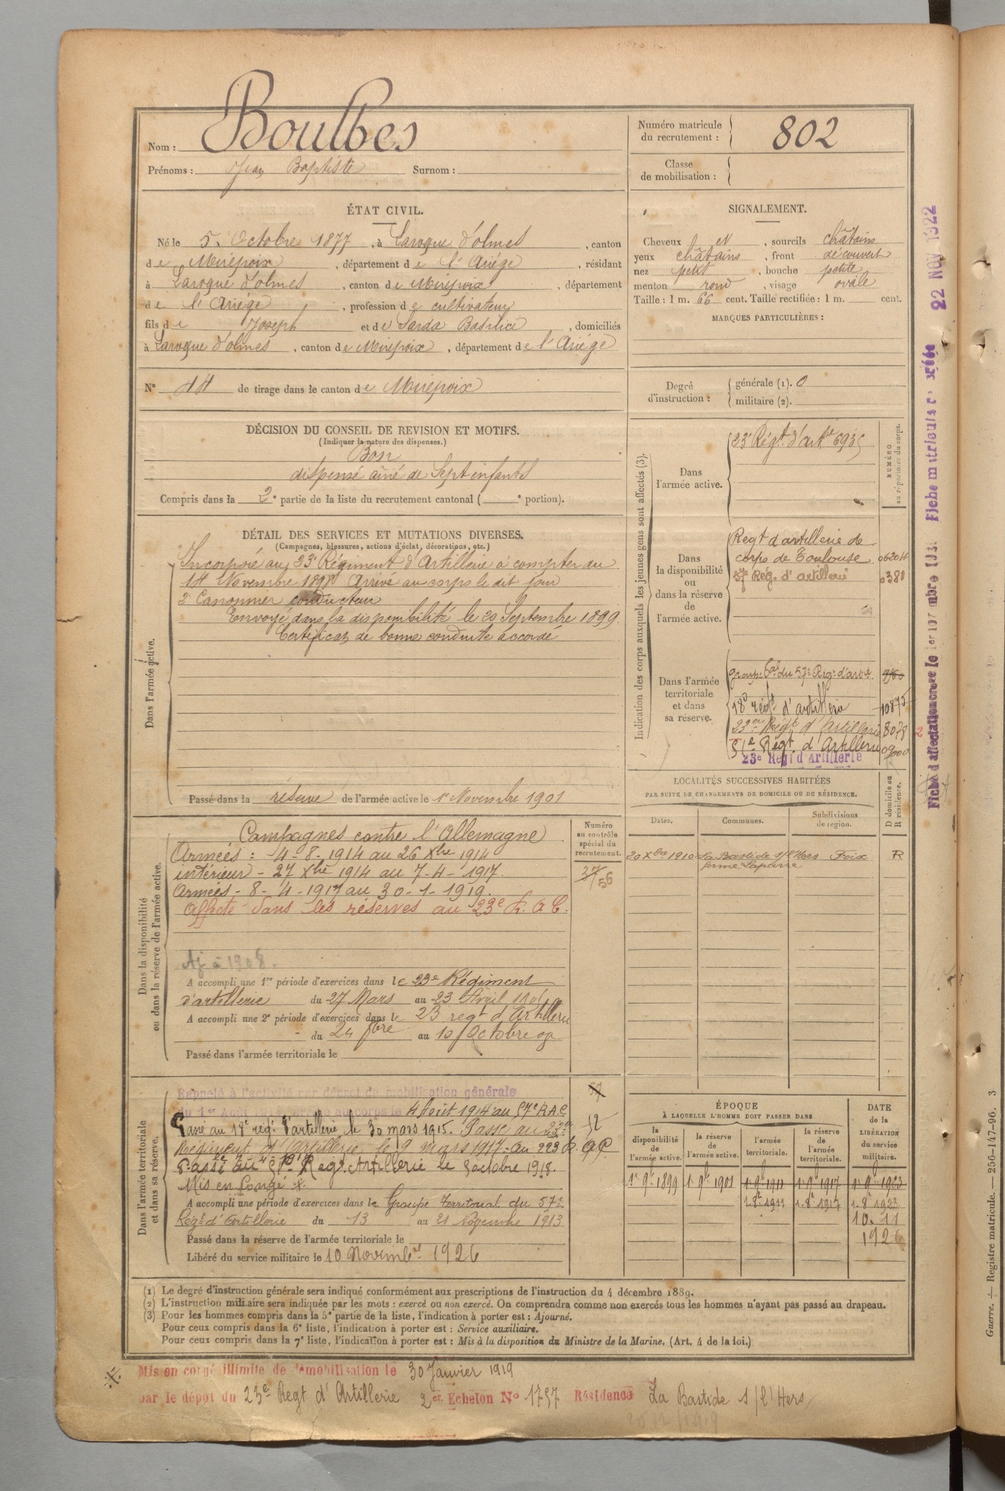 Nom : Boulbes
Prénoms : Jean Baptiste Surnom :
Numéro matricule du recrutement : 802
Classe de mobilisation :
ÉTAT CIVIL.
Né le 5 Octobre 1877, à Laroque d'olmes, canton
de Mirepoix, département de l'Ariége, résidant
à Laroque d'olmes, canton de Mirepoix, département
de l'Ariége, profession de cultivateur
fils de Joseph et de Sarda Basilice, domiciliés
à Laroque d'olmes, canton de Mirepoix, département de l'Ariége
N° 44 de tirage dans le canton de Mirepoix
SIGNALEMENT.
Cheveux et, sourcils châtains
yeux châtains, front découvert
nez petit, bouche petite
menton rond, visage ovale
Taille : 1 m. 66 cent. Taille rectifiée : 1 m. cent.
MARQUES PARTICULIÈRES :
Degré d'instruction : générale (1). 0
militaire (2).
DÉCISION DU CONSEIL DE REVISION ET MOTIFS.
(Indiquer la nature des dispenses.)
Bon
dispensé aîné de Sept enfants
Compris dans la 2e partie de la liste du recrutement cantonal ( e portion).
DÉTAIL DES SERVICES ET MUTATIONS DIVERSES.
(Campagnes, blessures, actions d'éclat, décorations, etc.)
Dans l'armée active.
Incorporé au 23e Régiment d'Artillerie à compter du
14 Novembre 1898 Arrivé au corps le dit jour
2e Canonnier conducteur
Envoyé dans la disponibilité le 20 Septembre 1899
Certificat de bonne conduite accordé
Passé dans la réserve de l'armée active le 1er Novembre 1901
Indication des corps auxquels les jeunes gens sont affectés (3).
NUMÉRO au répertoire du corps.
Dans l'armée active.
23e Régt d'artie 6935
Dans la disponibilité ou dans la réserve de l'armée active.
Regt d'artillerie de
corps de Toulouse
57e Rég. d'artillerie 0380
Dans l'armée territoriale et dans sa réserve.
groupe tal du 57e Reg. d'art.
18e régt d'artillerie 10875
23me Régt d'Artillerie 8078
51e Régt d'Artillerie
23e Regt d'Artillerie
Fiche matricule créée 22 NOV 1922
LOCALITÉS SUCCESSIVES HABITÉES
PAR SUITE DE CHANGEMENTS DE DOMICILE OU DE RÉSIDENCE.
Dates. Communes. Subdivisions de région. D domicile ou R résidence.
20 Xbre 1910 La Bastide s/l'Hers Foix R
ferme Laparre
Numéro au contrôle spécial du recrutement.
Dans la disponibilité ou dans la réserve de l'armée active.
Campagnes contre l'Allemagne
Armées : 4-8-1914 au 26 Xbre 1914
intérieur - 27 Xbre 1914 au 7-4-1917.
Armées - 8-4-1917 au 30-1-1919.
Affecté dans les réserves au 23e R.A.C.
Aj à 1908.
A accompli une 1re période d'exercices dans le 23e Régiment
d'artillerie du 27 Mars au 23 Avril
A accompli une 2e période d'exercices dans le 23 regt d'Artillerie
du 24 7bre au 10 Octobre 09
Passé dans l'armée territoriale le
Dans l'armée territoriale et dans sa réserve.
Rappelé à l'activité par décret de mobilisation générale
du 1er Août 1914 arrivé au corps le 4 Août 1914 au 57e R.A.C
Passé au 18e régt d'artillerie le 30 mars 1915. Passé au 23e
Régiment d'Artillerie le 9 mars 1917. au 223 R.A.C
Passé au 51e Regt Artillerie le 3 octobre 1918.
Mis en Congé *
A accompli une période d'exercices dans le Groupe Territorial du 57e
Régt d'Artillerie du 13 au 21 Novembre 1913
Passé dans la réserve de l'armée territoriale le
Libéré du service militaire le 10 Novembre 1926
ÉPOQUE
À LAQUELLE L'HOMME DOIT PASSER DANS
la disponibilité de l'armée active. la réserve de l'armée active. l'armée territoriale. la réserve de l'armée territoriale.
DATE DE LA LIBÉRATION du service militaire.
1er 9bre 1899 1er 9bre 1901 1er 9bre 1911 1er 9bre 1917 1er 9bre 1923
10.11
1926
(1) Le degré d'instruction générale sera indiqué conformément aux prescriptions de l'instruction du 4 décembre 1889.
(2) L'instruction militaire sera indiquée par les mots : exercé ou non exercé. On comprendra comme non exercés tous les hommes n'ayant pas passé au drapeau.
(3) Pour les hommes compris dans la 5e partie de la liste, l'indication à porter est : Ajourné.
Pour ceux compris dans la 6e liste, l'indication à porter est : Service auxiliaire.
Pour ceux compris dans la 7e liste, l'indication à porter est : Mis à la disposition du Ministre de la Marine. (Art. 4 de la loi.)
* Mis en congé illimité de démobilisation le 30 Janvier 1919
par le dépôt du 23e Regt d'Artillerie 2e Echelon N° 1757 Résidence La Bastide s/l'Hers
Guerre. — Registre matricule. — 256-147-96. 3